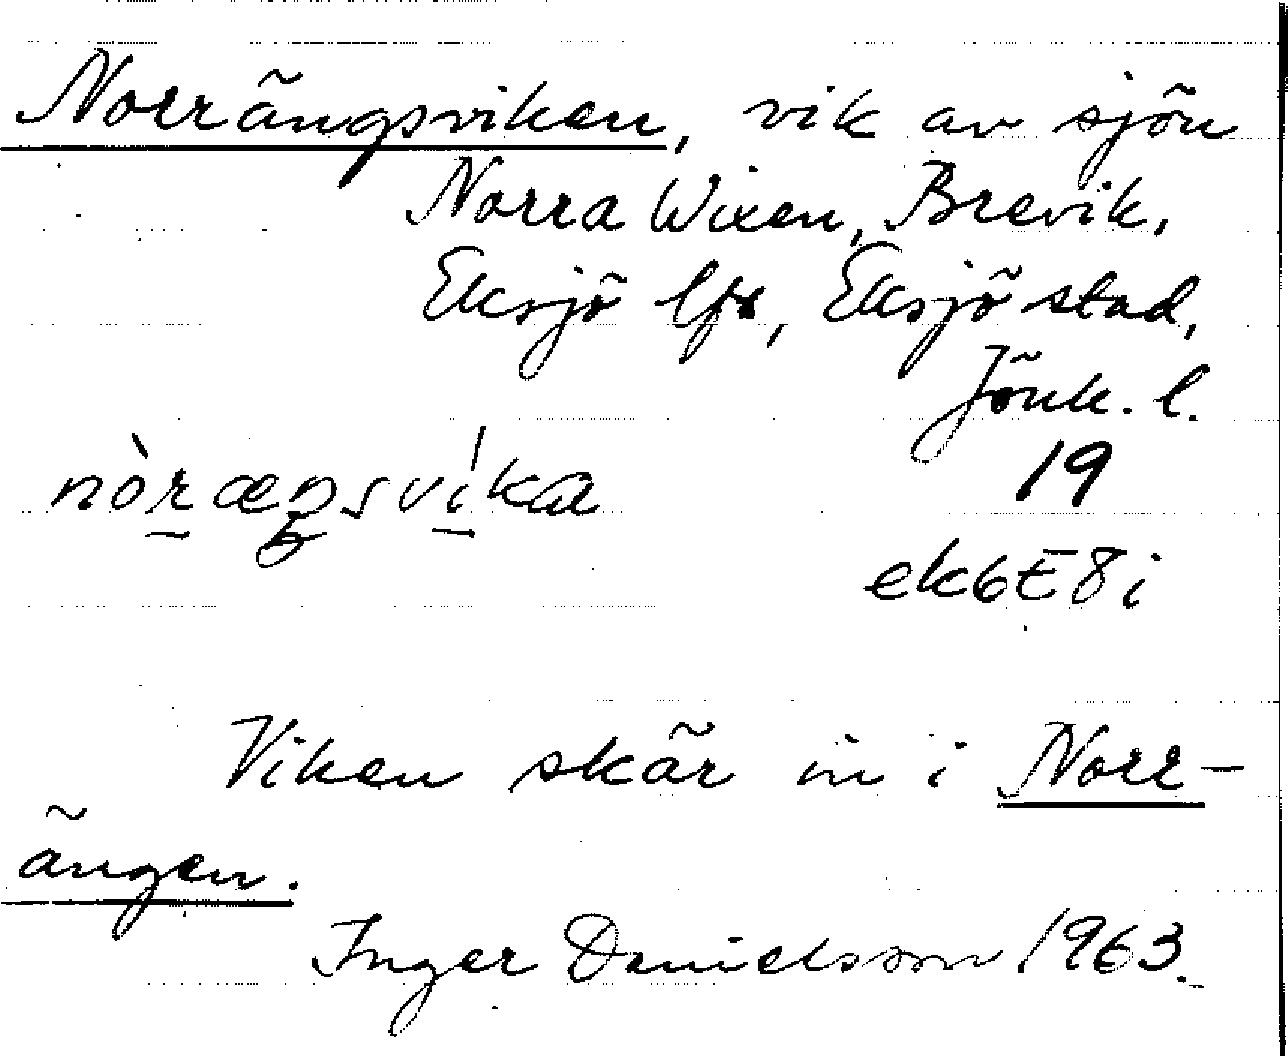 Norrängsviken, vik av sjön
Norra Wixen, Brevik,
Eksjö lfs, Eksjö stad,
Jönk. l.
nòræŋsvíka
19
ek6E8i
Viken skär in i Norr-
ängen.
Inger Danielsson 1963.